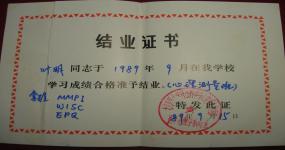 结业证书
叶明 同志于 1989 年 9 月在我学校
学习成绩合格准予结业。(心理测量班)
MMPI
特发此证
WISC
EPQ
89. 9. 15日